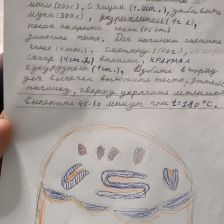 масло (200г.), с яйцом (1.шт.), добавить
муки (300г.), разрыхлитель (1ч.л),
песок сахарный песок (115г)
Замесить тесто. Для начинки смешать
яйцо (4шт.), сметану (500г.),
сахар (4ст.л) ванилин, крахмал
кукурузный (1ст.). Взбить в форму
для выпечки выложить тесто, залить
начинку, сверху украсить
выпекать 45-50 минут при t=180°C.